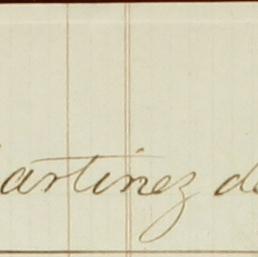 artinez de